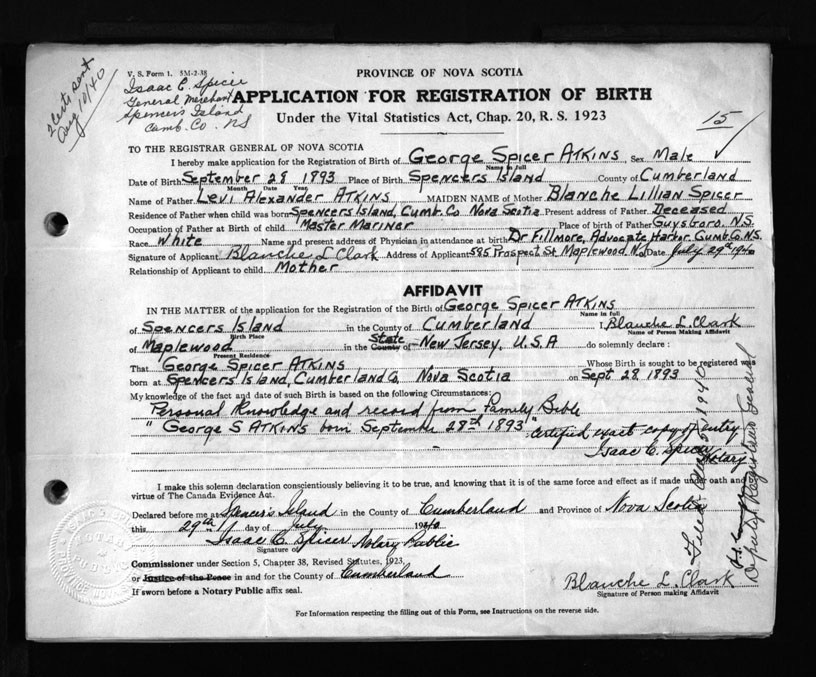 V. S. Form 1. 5M-2-38
2 Certs sent
Aug 10/40
Isaac C. Spicer
General Merchant
Spencers Island
Cumb. Co. N S
PROVINCE OF NOVA SCOTIA
APPLICATION FOR REGISTRATION OF BIRTH
Under the Vital Statistics Act, Chap. 20, R. S. 1923
15
TO THE REGISTRAR GENERAL OF NOVA SCOTIA
I hereby make application for the Registration of Birth of George Spicer ATKINS, Sex Male
Name in full
Date of Birth September 28 1893 Place of Birth Spencers Island County of Cumberland
Month Date Year
Name of Father Levi Alexander ATKINS MAIDEN NAME of Mother Blanche Lillian Spicer
Residence of Father when child was born Spencers Island, Cumb. Co Nova Scotia Present address of Father Deceased
Occupation of Father at Birth of child Master Mariner Place of birth of Father Guysboro. N.S.
Race White Name and present address of Physician in attendance at birth Dr Fillmore, Advocate Harbor Cumb. Co. N.S.
Signature of Applicant Blanche L Clark Address of Applicant 595 Prospect St Maplewood N.J. Date July 29th 1940
Relationship of Applicant to child Mother
AFFIDAVIT
IN THE MATTER of the application for the Registration of the Birth of George Spicer ATKINS
Name in full
of Spencers Island in the County of Cumberland I, Blanche L. Clark
Birth Place Name of Person Making Affidavit
of Maplewood in the County State of New Jersey, U.S.A do solemnly declare :
Present Residence
That George Spicer ATKINS Whose Birth is sought to be registered was
born at Spencers Island, Cumberland Co, Nova Scotia on Sept 28, 1893
My knowledge of the fact and date of such Birth is based on the following Circumstances:
Personal Knowledge and record from Family Bible
" George S ATKINS born September 28th 1893" Certified exact copy of entry
Isaac C. Spicer
Notary
I make this solemn declaration conscientiously believing it to be true, and knowing that it is of the same force and effect as if made under oath and
virtue of The Canada Evidence Act.
Declared before me at Spencer's Island in the County of Cumberland and Province of Nova Scotia
this 29th day of July 1940
Isaac C. Spicer Notary Public
Signature of
Commissioner under Section 5, Chapter 38, Revised Statutes, 1923,
or Justice of the Peace in and for the County of Cumberland
If sworn before a Notary Public affix seal.
Blanche L. Clark
Signature of Person making Affidavit
For Information respecting the filling out of this Form, see Instructions on the reverse side.
Filed 1940
Deputy Registrar General